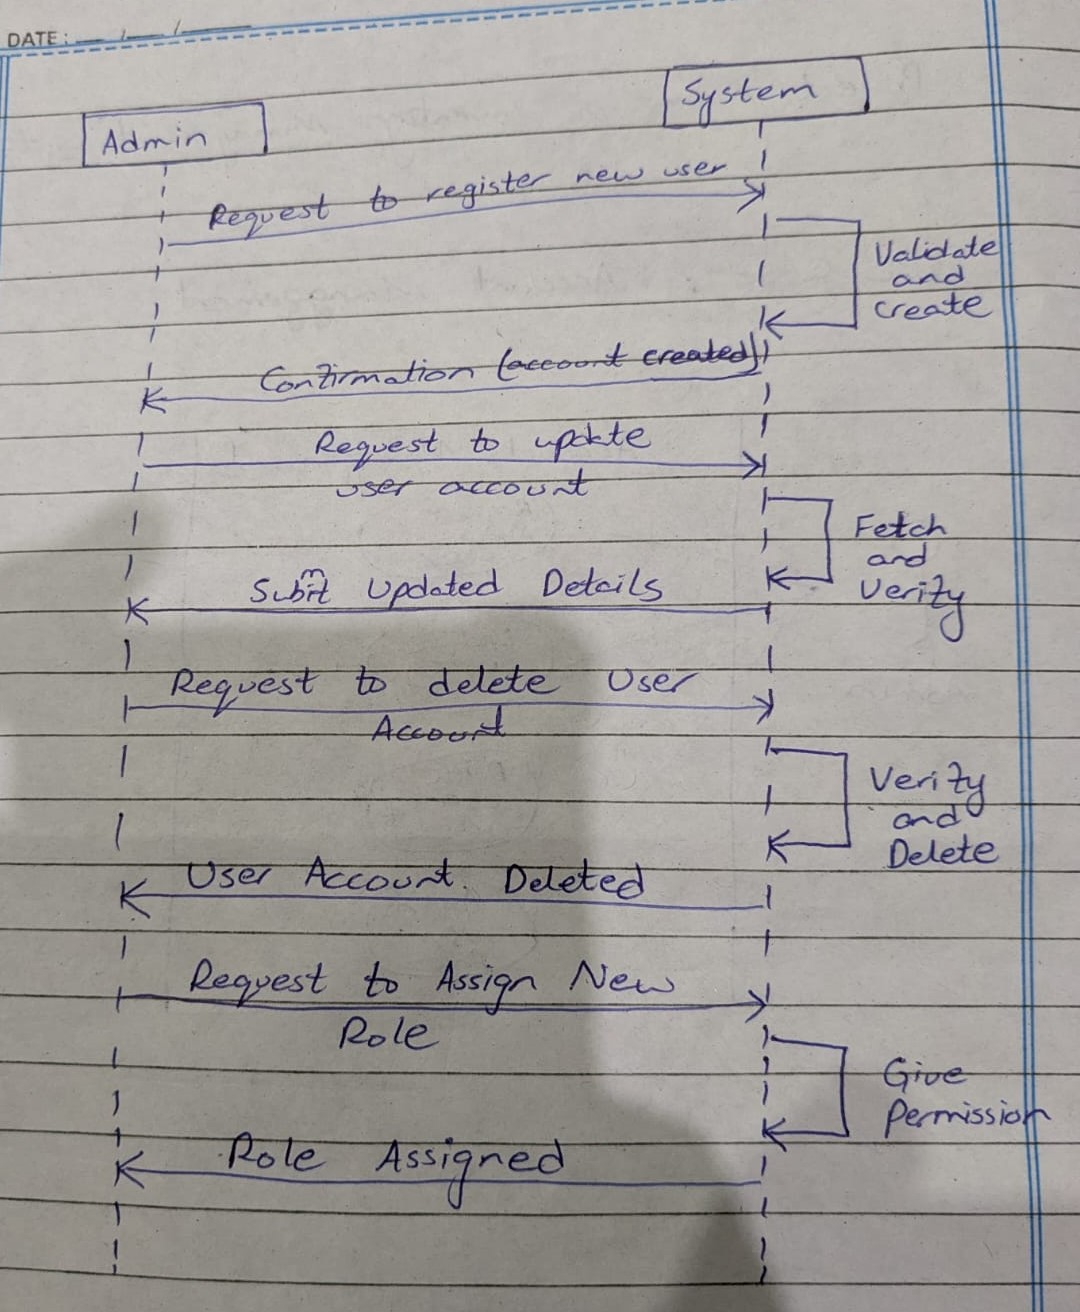 DATE:
System
Admin
Request to register new user
Validate
and
create
Confirmation (account created)
Request to update
user account
Fetch
and
Verify
Submit Updated Details
Request to delete User
Account
Verify
and
Delete
User Account Deleted
Request to Assign New
Role
Give
Permission
Role Assigned